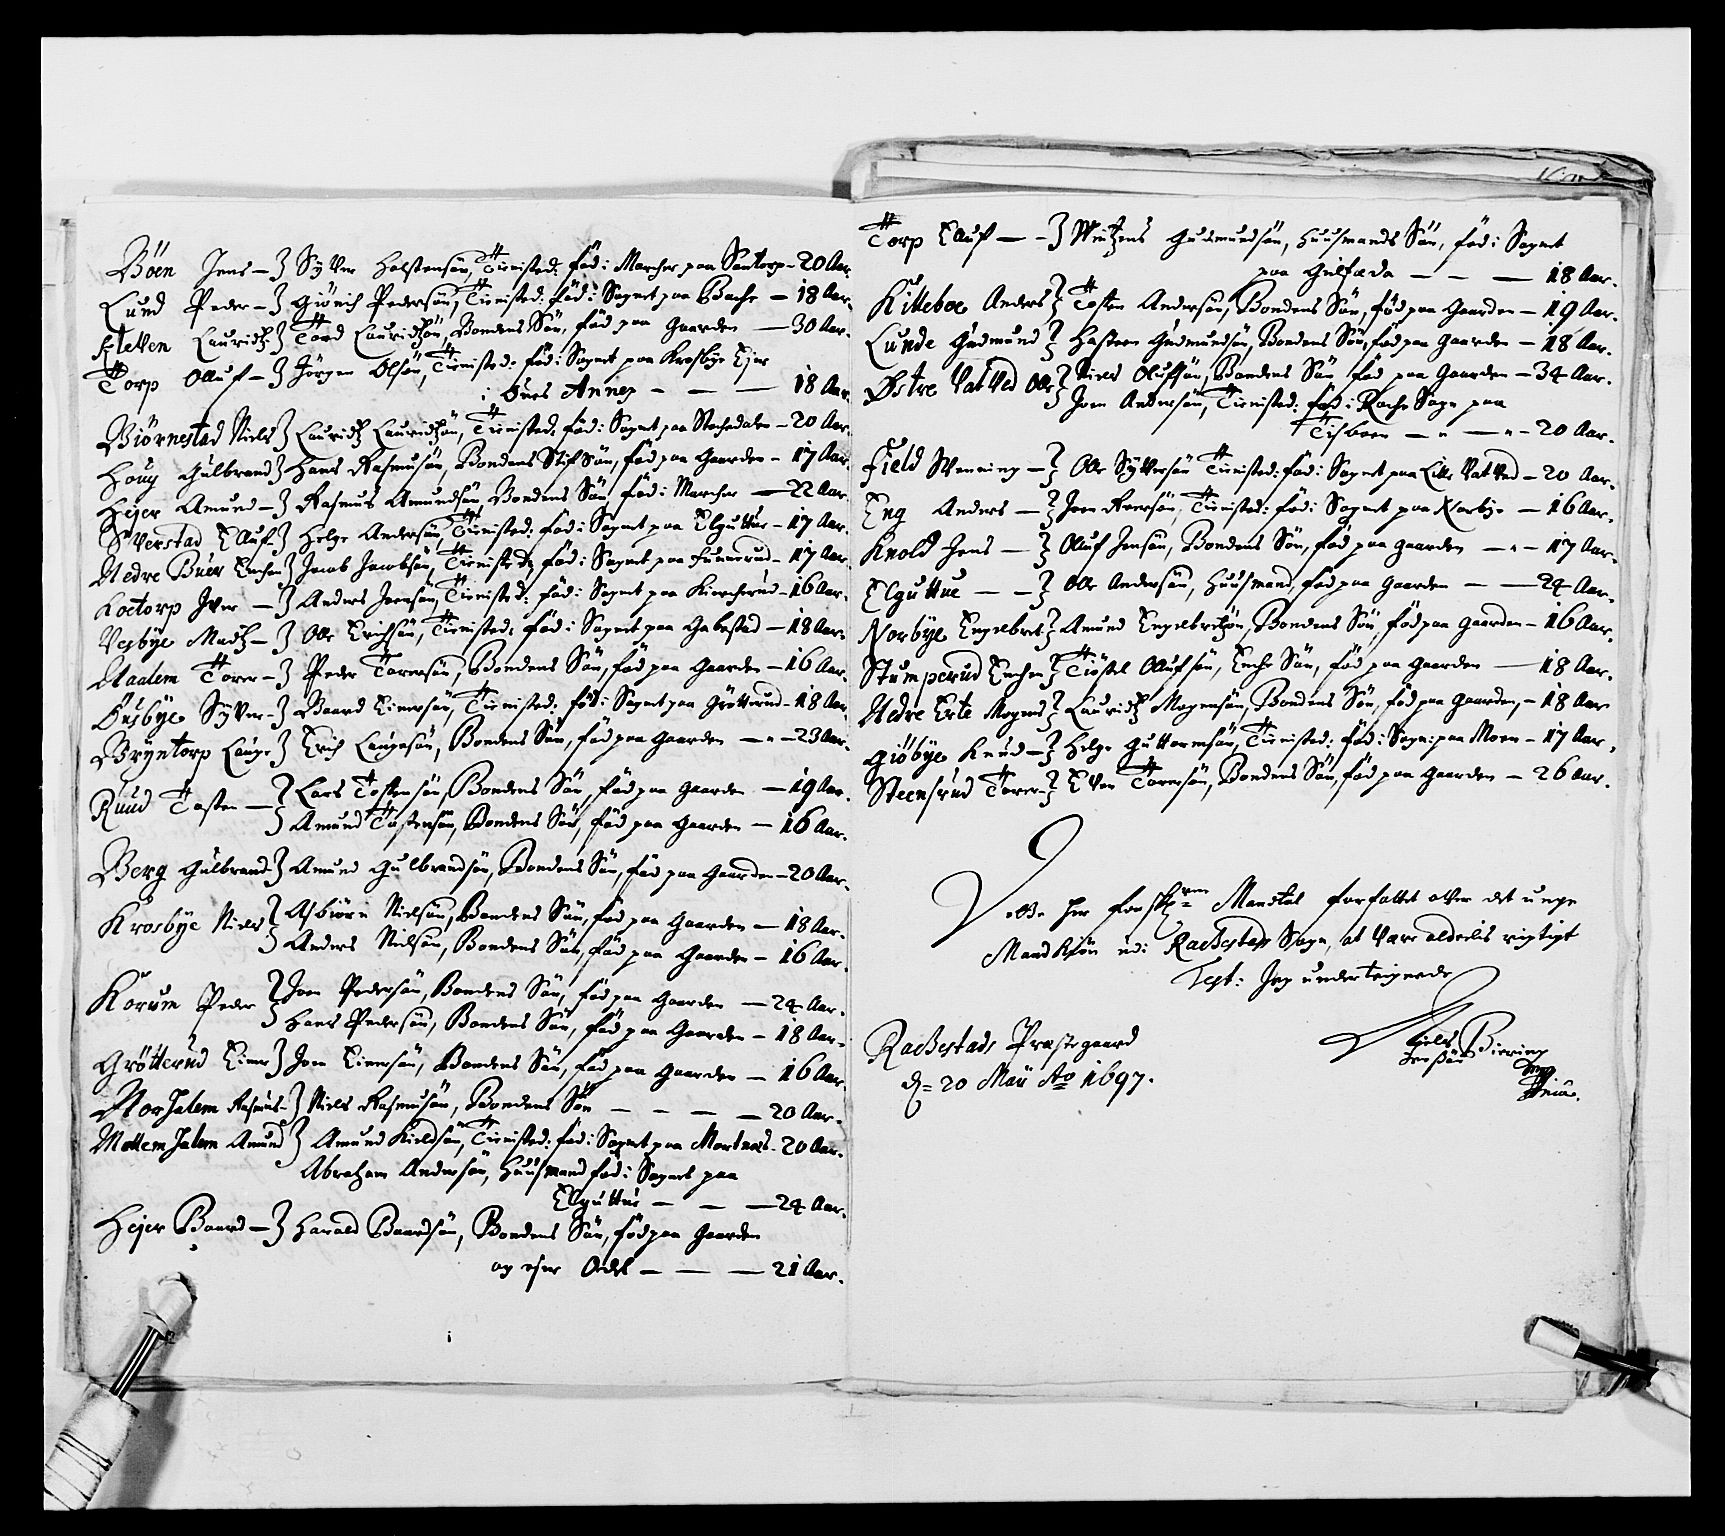 Böen Jens — } Syver Holstensön, Tienisted: föd i Marcher paa Santorp - 20 Aar.
Lund Peder — } Giörich Pedersön, Tienisted: föd i Sognet paa Bache — 18 Aar.
Kleven Lauridtz } Tord Lauridtzön, Bondens Sön, föd paa Gaarden — 30 Aar.
Torp Olluf — } Jörgen Olsön, Tienisted: föd i Sognet paa Krosbye Ejer
i Öues Annex — — — 18 Aar
Biörnestad Niels } Lauridtz Lauridtzön, Tienisted: föd i Sognet paa Stachedalen - 20 Aar.
Houg Gulbrand } Hans Rasmusön, Bondens Stif Sön, föd paa Gaarden - 17 Aar.
Hejer Amund — } Rasmus Amundsön Bondens Sön föd i Marcher — 22 Aar.
Syverstad Elluf } Helge Andersön, Tienisted: föd i Sognet paa Elguttue - 17 Aar.
Nedre Buer Enchen } Jacob Jacobsön, Tienisted: föd i Sognet paa Funnerud - 17 Aar.
Koetorp Iver — } Anders Joensön, Tienisted: föd i Sognet paa Kiercherud - 16 Aar.
Vesbye Madtz — } Olle Erichsön, Tienisted: föd i Sognet paa Gabestad — 18 Aar.
Aalem Torer — } Peder Torersön, Bondens Sön, föd paa Gaarden — 16 Aar.
Öusbye Syver - } Baard Einersön, Tienisted: föd i Sognet paa Grötterud - 18 Aar.
Bryntorp Lauge } Erich Laugesön, Bondens Sön, föd paa Gaarden — 23 Aar.
Ruud Tosten — } Lars Tostensön, Bondens Sön, föd paa Gaarden — 19 Aar.
} Amund Tostensön, Bondens Sön, föd paa Gaarden — 16 Aar.
Berg Gulbrand } Amund Gulbrandsön, Bondens Sön, föd paa Gaarden - 20 Aar.
Krosbye Niels } Asbiörn Nielsön, Bondens Sön, föd paa Gaarden — 18 Aar.
} Anders Nielsön, Bondens Sön, föd paa Gaarden — 16 Aar.
Korum Peder } Joen Pedersön, Bondens Sön, föd paa Gaarden — 24 Aar.
} Hans Pedersön, Bondens Sön, föd paa Gaarden — 18 Aar.
Grötterud Einer } Joen Einersön, Bondens Sön, föd paa Gaarden — 16 Aar.
Nor Jalem Rasmus - } Niels Rasmusön, Bondens Sön — — — — 20 Aar.
Mellem Jalem Amund } Amund Kieldsön, Tienisted: föd i Sognet paa Mortnes - 20 Aar.
Abraham Andersön, Huusmand föd i Sognet paa
Elguttue — — — 24 Aar.
Hejer Baard — } Harald Baardsön, Bondens Sön, föd paa Gaarden
og ejer Odel — — — 21 Aar.
Torp Elluf — - } Mentzens Gudmundsön, Huusmands Sön, föd i Sognet
paa Gulfæda — — — 18 Aar.
Killeboe Anders } Tosten Andersön, Bondens Sön, föd paa Gaarden — 19 Aar.
Lunde Gudmund } Hosteen Gudmundsön, Bondens Sön, föd paa Gaarden — 18 Aar.
Østre Vatved Olle } Siverd Olufsön, Bondens Sön föd paa Gaarden — 34 Aar.
} Joen Andersön, Tienisted: föd i Rache Sogn paa
Tisbeen — — - 20 Aar.
Field Svenning — } Olle Syversön Tienisted: föd i Sognet paa Lille Vatved — 20 Aar.
Eng Anders — } Joen Iversön, Tienisted: föd i Sognet paa Norbye — 16 Aar.
Knold Jens — } Oluf Jensön, Bondens Sön, föd paa Gaarden — - — 17 Aar.
Elguttue — — } Olle Andersön, Huusmand, föd paa Gaarden — — 24 Aar.
Norbye Engelbret } Amund Engelbretzön, Bondens Sön, föd paa Gaarden - 16 Aar.
Stumperud Enchen } Tiöstel Olufsön, Enche Sön, föd paa Gaarden — 18 Aar.
Nedre Erte Mogens } Lauridtz Mogensön, Bondens Sön, föd paa Gaarden, - 18 Aar
Giöbye Knud — } Helge Guttormsön, Tienisted: föd i Sogn: paa Moen - 17 Aar.
Steensrud Torer - } Even Torersön, Bondens Sön, föd paa Gaarden — 26 Aar.
dette her forsk:ne Mandtal forfattet over det unge
Mandkiön udi Rachestads Sogn, at være aldeelis rigtigt
Test: Jeg underteignede
Rachestads Præstegaard
d= 20 Maii Ao 1697.
Niels Jensön Biering